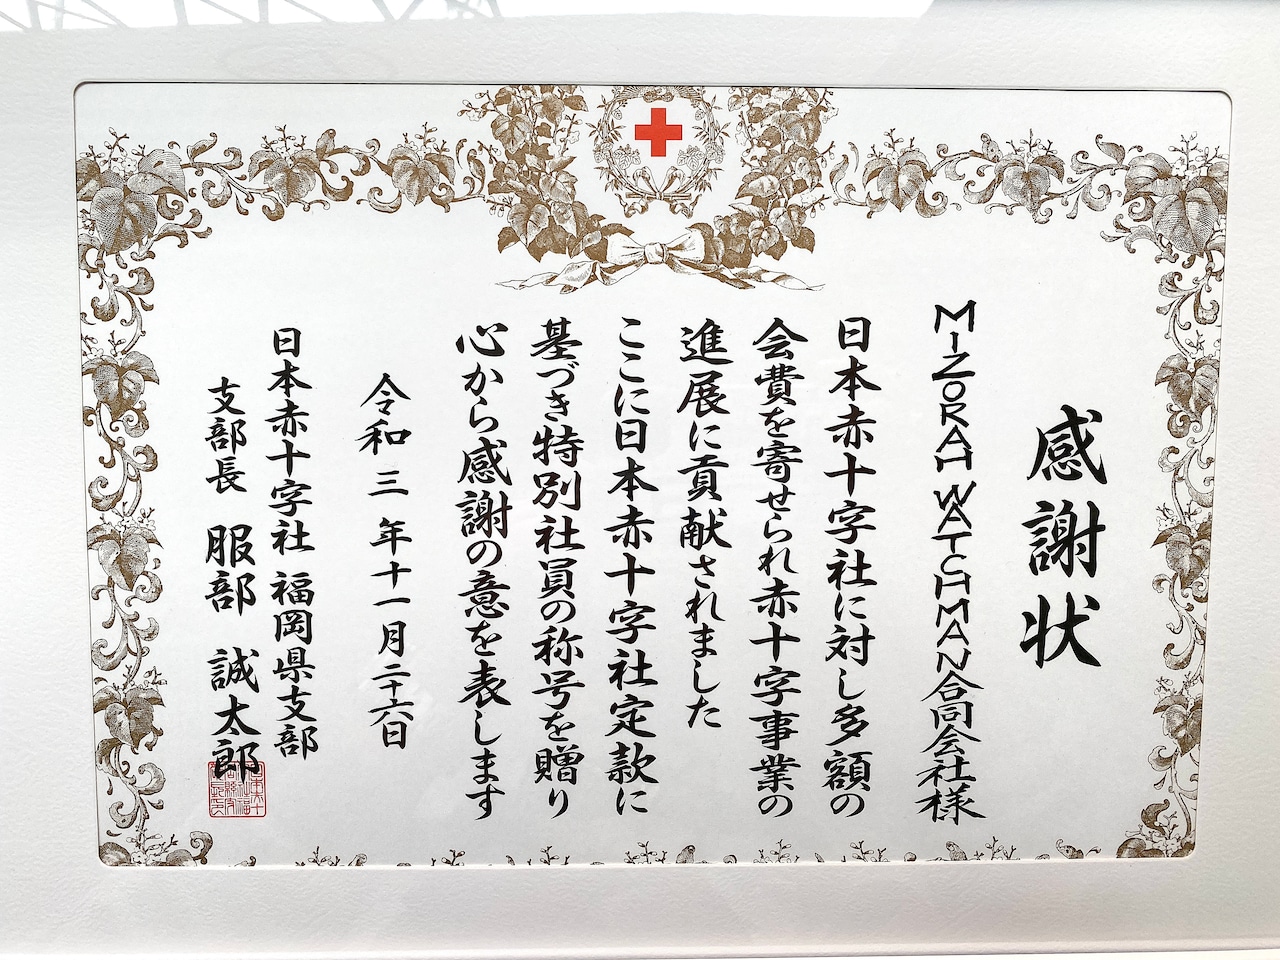 感謝状
MIZORAH WATCHMAN合同会社様
日本赤十字社に対し多額の
会費を寄せられ赤十字事業の
進展に貢献されました
ここに日本赤十字社定款に
基づき特別社員の称号を贈り
心から感謝の意を表します
令和三年十一月二十六日
日本赤十字社 福岡県支部
支部長 服部 誠太郎